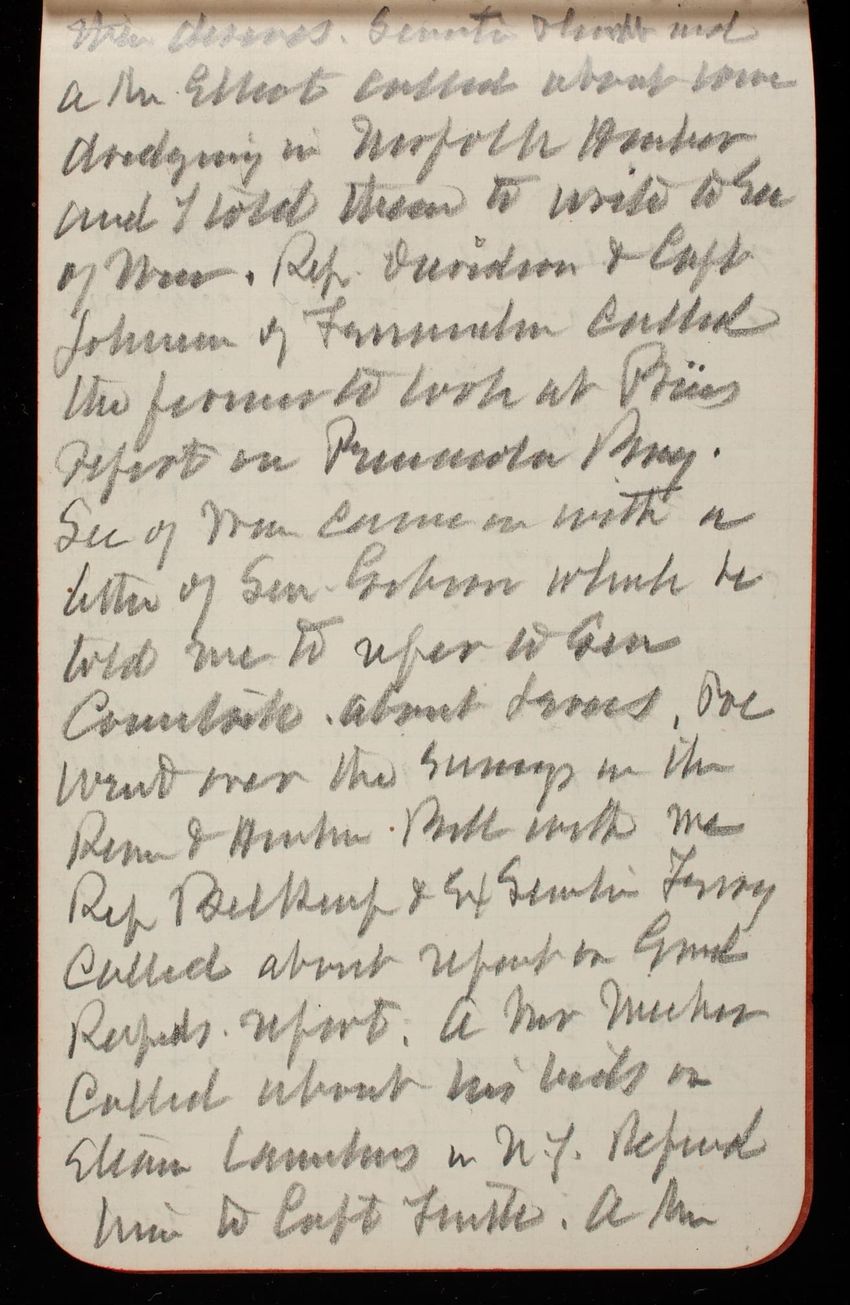 deserves. Senator
a Mr. Elliot called about some
dredging in Norfolk Harbor
and I told them to write to Sec
of War. Rep. Davidson & Capt
Johnson of Fernandina called
the former to look at
report on Pensacola Bay.
Sec of War came in with a
letter of Sen. which he
told me to refer to Gen
about . We
went over the Surveys in the
River & Harbor Bill with me
Rep Belknap & Ex Senator Ferry
Called about report on Grand
Rapids. report. A Mr Meeker
Called about his bids on
Steam Launches in N.Y. Refered
him to Capt . A Mr